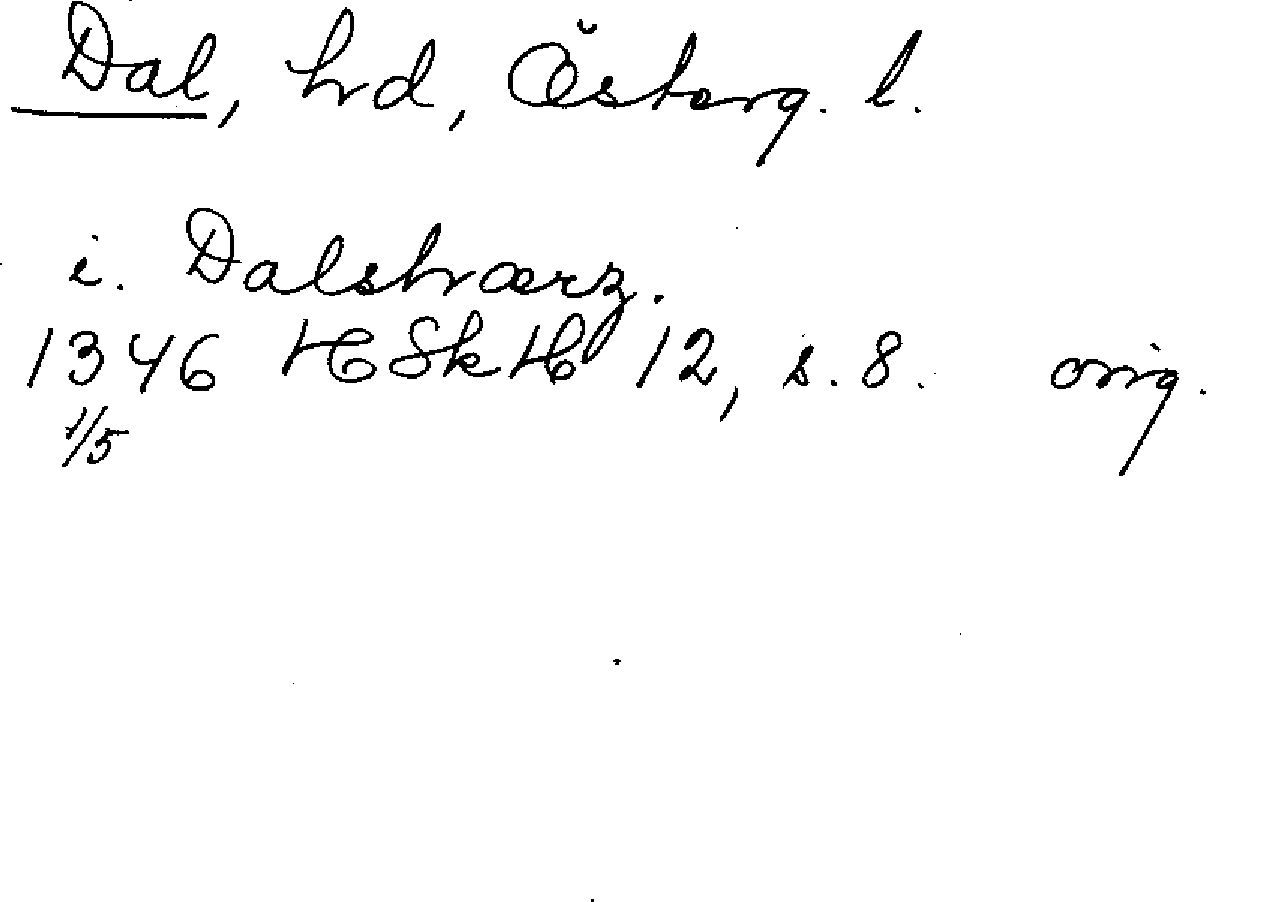 Dal, hd, Österg. l.
i. Dalshærz.
1346 HSkH 12, s. 8. orig.
1/5